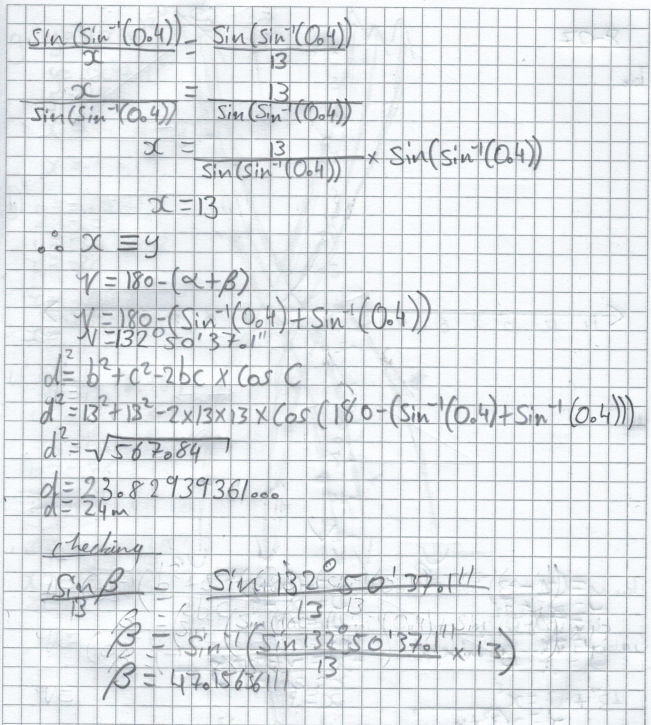 sin(sin⁻¹(0.4))/x = sin(sin⁻¹(0.4))/13
x/sin(sin⁻¹(0.4)) = 13/sin(sin⁻¹(0.4))
x = 13/sin(sin⁻¹(0.4)) × sin(sin⁻¹(0.4))
x = 13
∴ x ≡ y
γ = 180-(α+β)
γ = 180-(sin⁻¹(0.4)+sin⁻¹(0.4))
γ = 132°50'37.1"
d² = b²+c²-2bc × Cos C
d² = 13²+13²-2×13×13×Cos(180-(sin⁻¹(0.4)+sin⁻¹(0.4)))
d² = √567.84
d = 23.82939361...
d = 24m
checking
Sin β/13 = Sin 132°50'37.1"/13
β = Sin⁻¹(Sin 132°50'37.1"/13 × 13)
β = 47.15636111